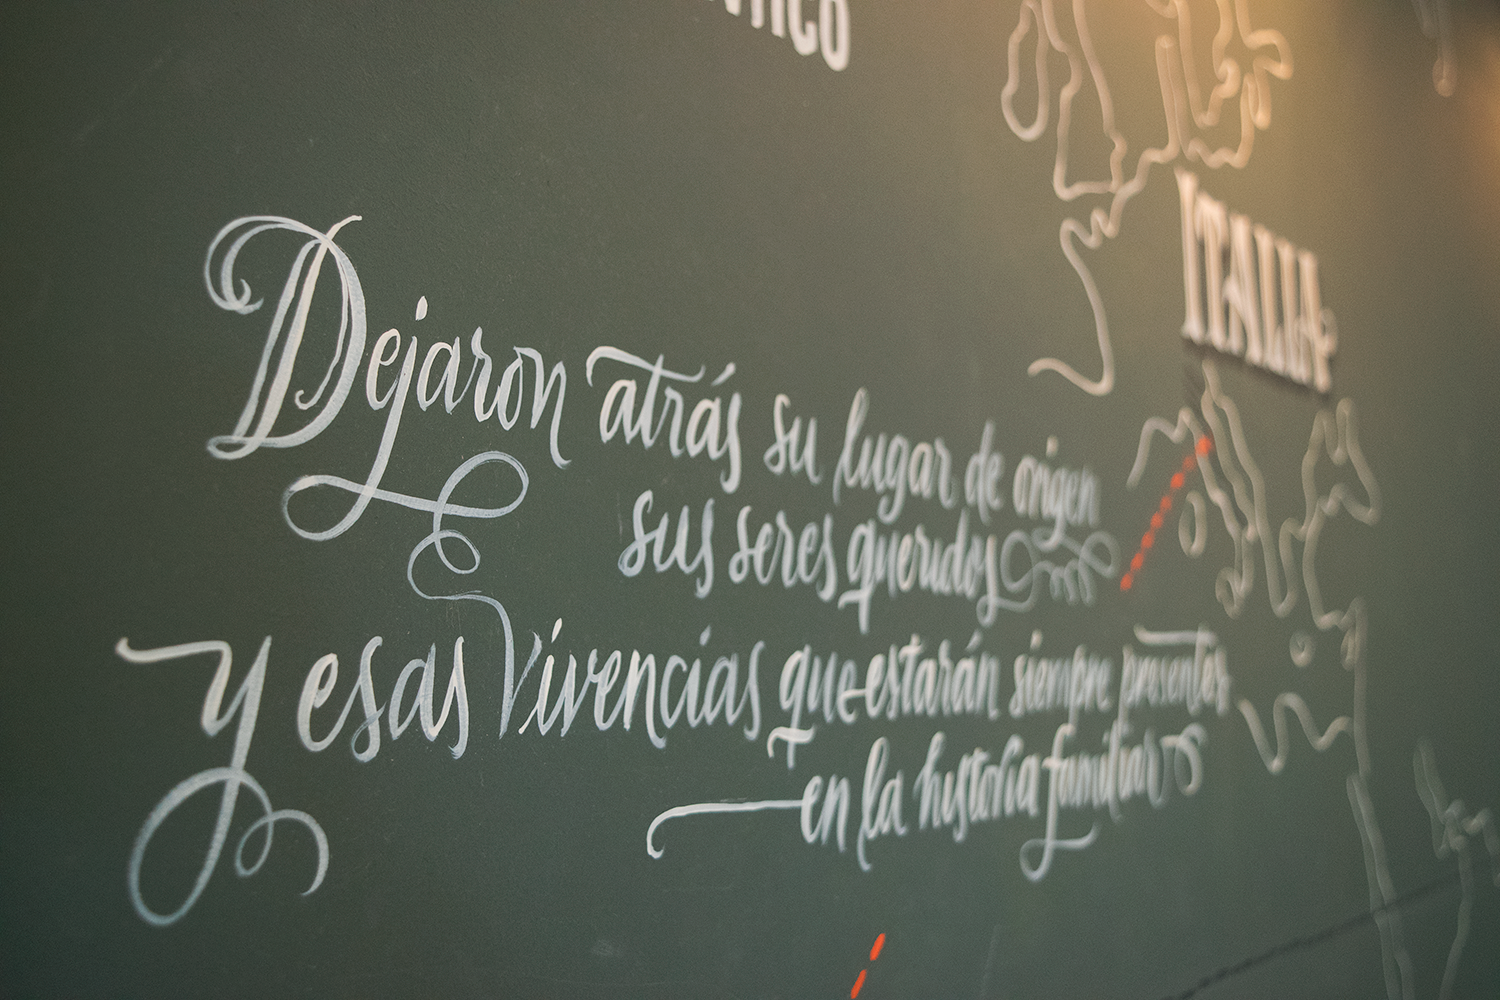 ITALIA
Dejaron atrás su lugar de origen
sus seres queridos
y esas vivencias que estarán siempre presentes
en la historia familiar